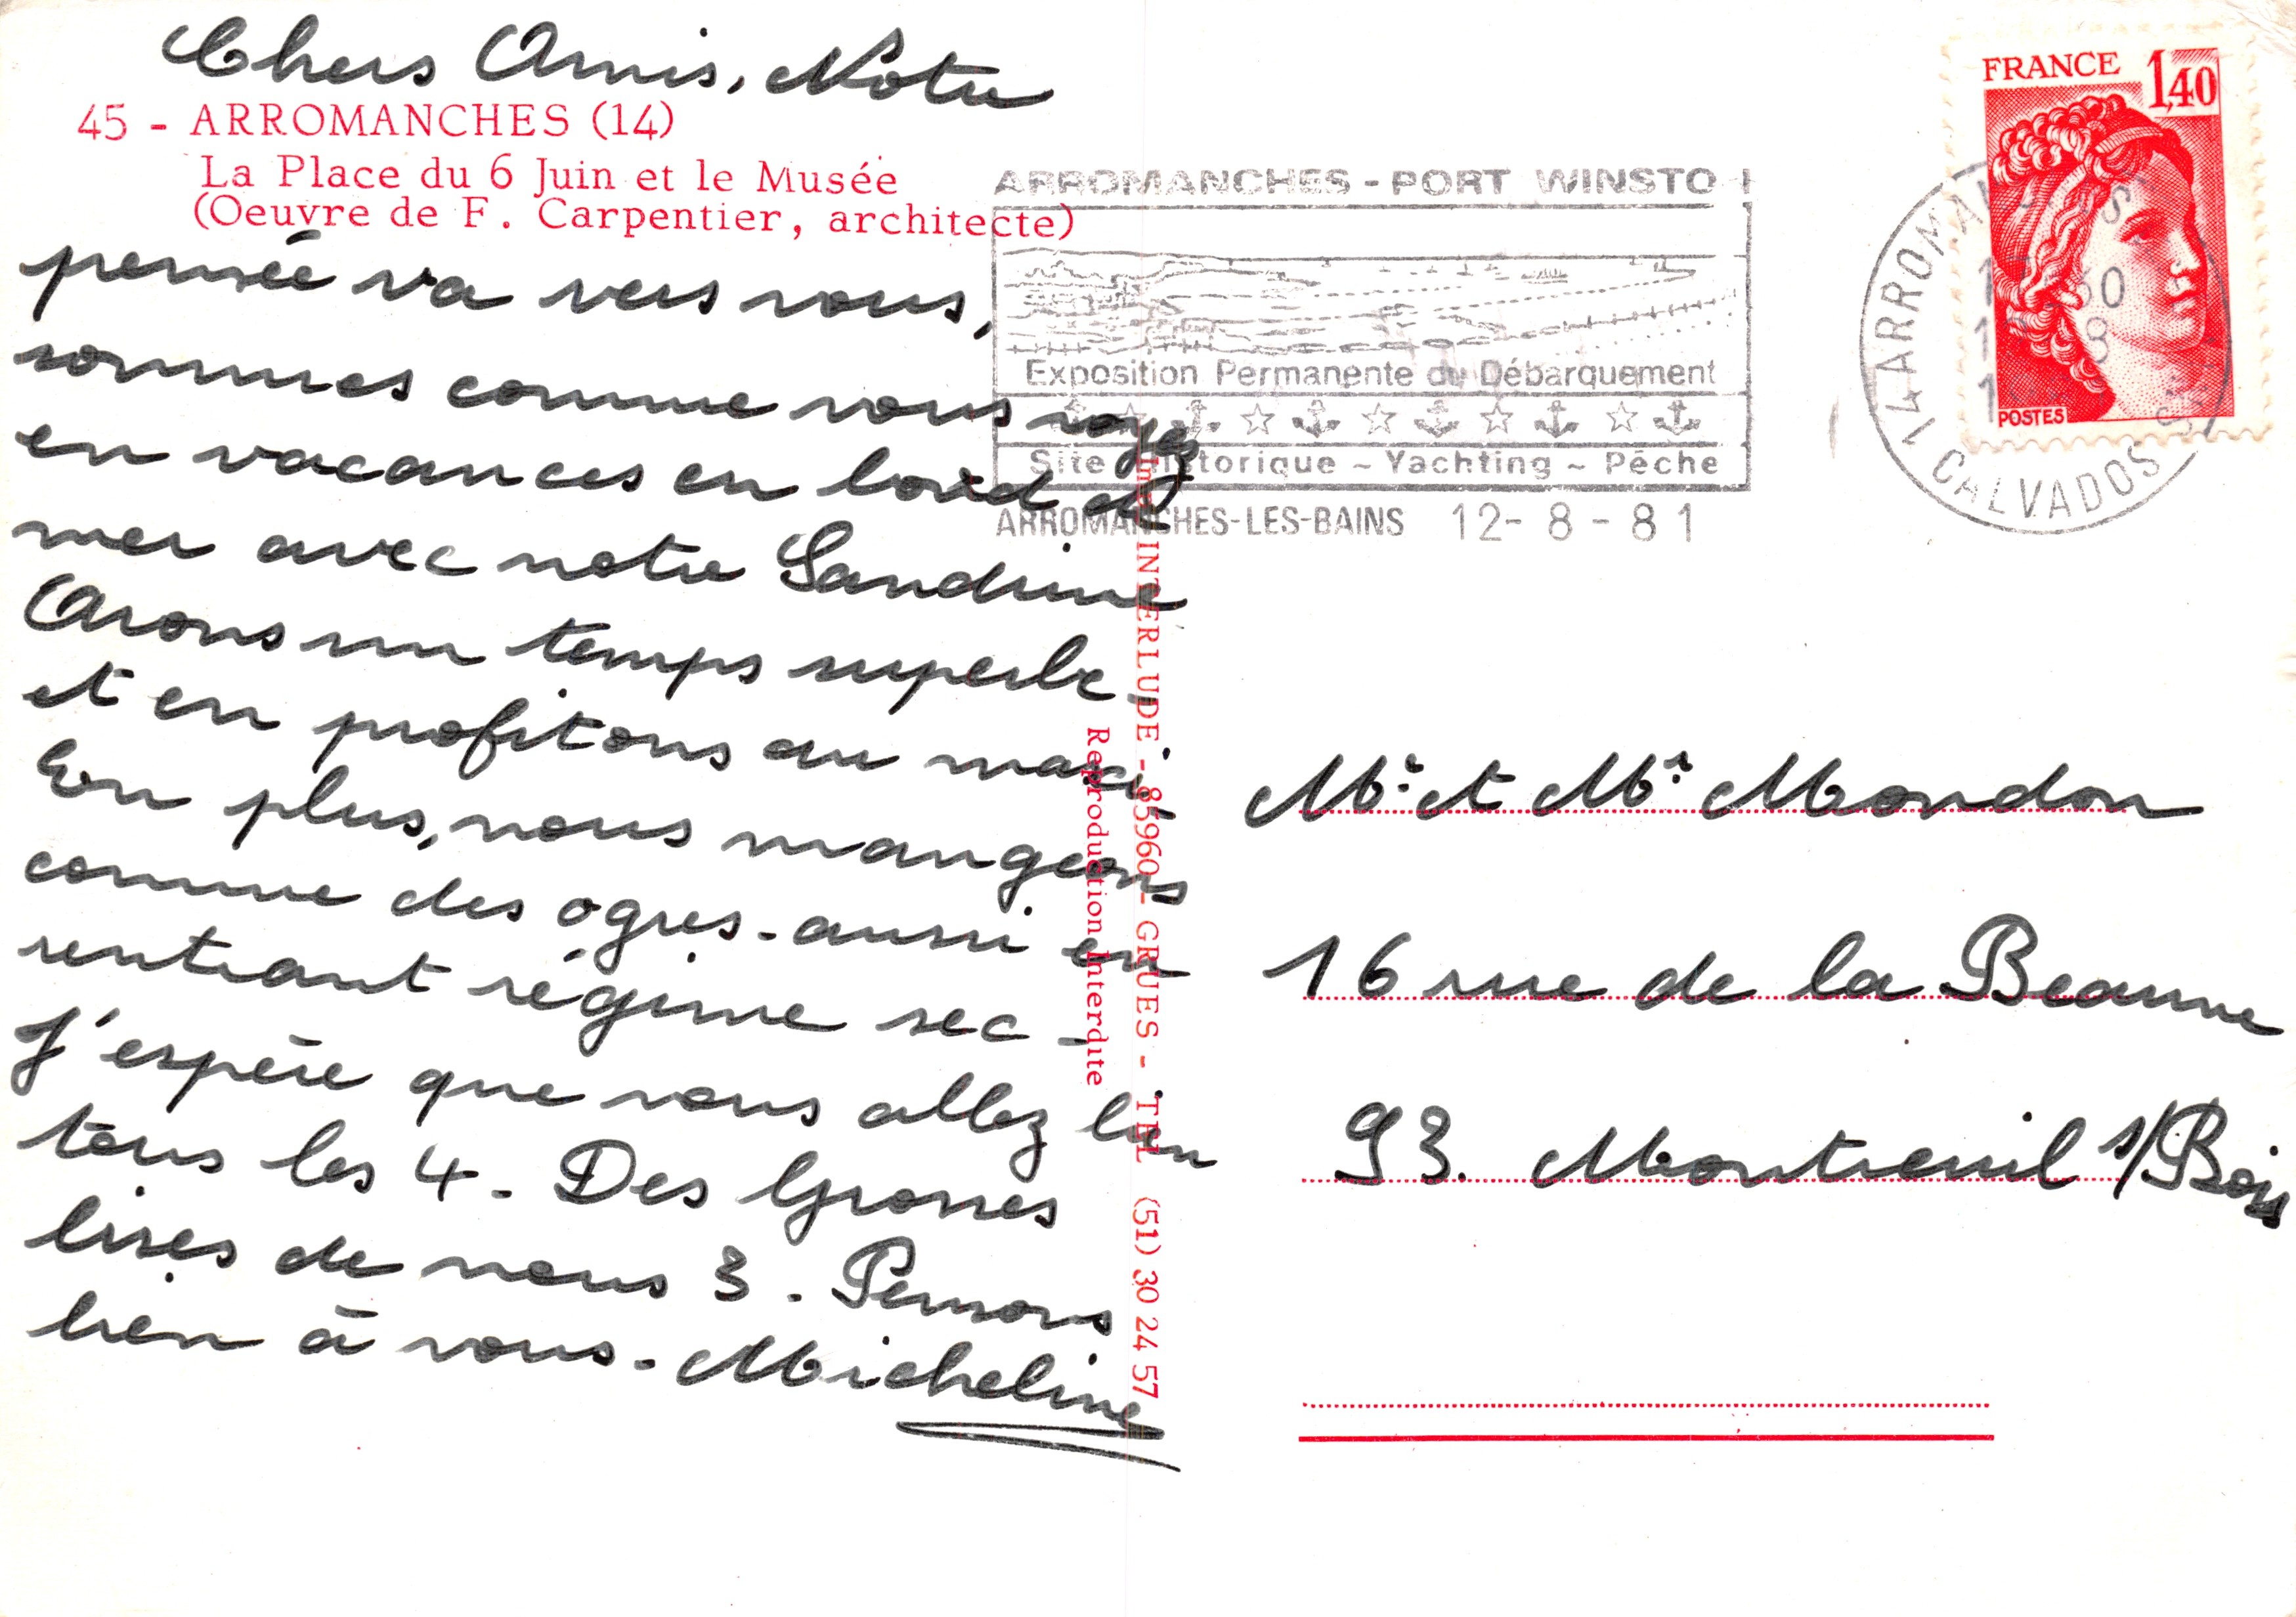 Chers Amis, Notre
45 - ARROMANCHES (14)
La Place du 6 Juin et le Musée
(Oeuvre de F. Carpentier, architecte)
pensée va vers vous,
sommes comme vous soyez
en vacances en bord de
mer avec notre Sandrine
Avons un temps superbe
et en profitons au maxi.
En plus, nous mangeons
comme des ogres - aussi en
rentrant régime sec -
J'espère que vous allez bien
tous les 4 - Des Grosses
bises de nous 3 - Pensons
bien à vous - Micheline
Imp. INTERLUDE - 85960 - GRUES - TEL (51) 30 24 57
Reproduction Interdite
ARROMANCHES - PORT WINSTO
Exposition Permanente du Débarquement
Site Historique ~ Yachting ~ Pêche
ARROMANCHES-LES-BAINS 12- 8 - 81
FRANCE 1,40
POSTES
14 ARROMANCHES
CALVADOS
Mr. et Mr. Mondon
16 rue de la Beaune
93. Montreuil s/Bois